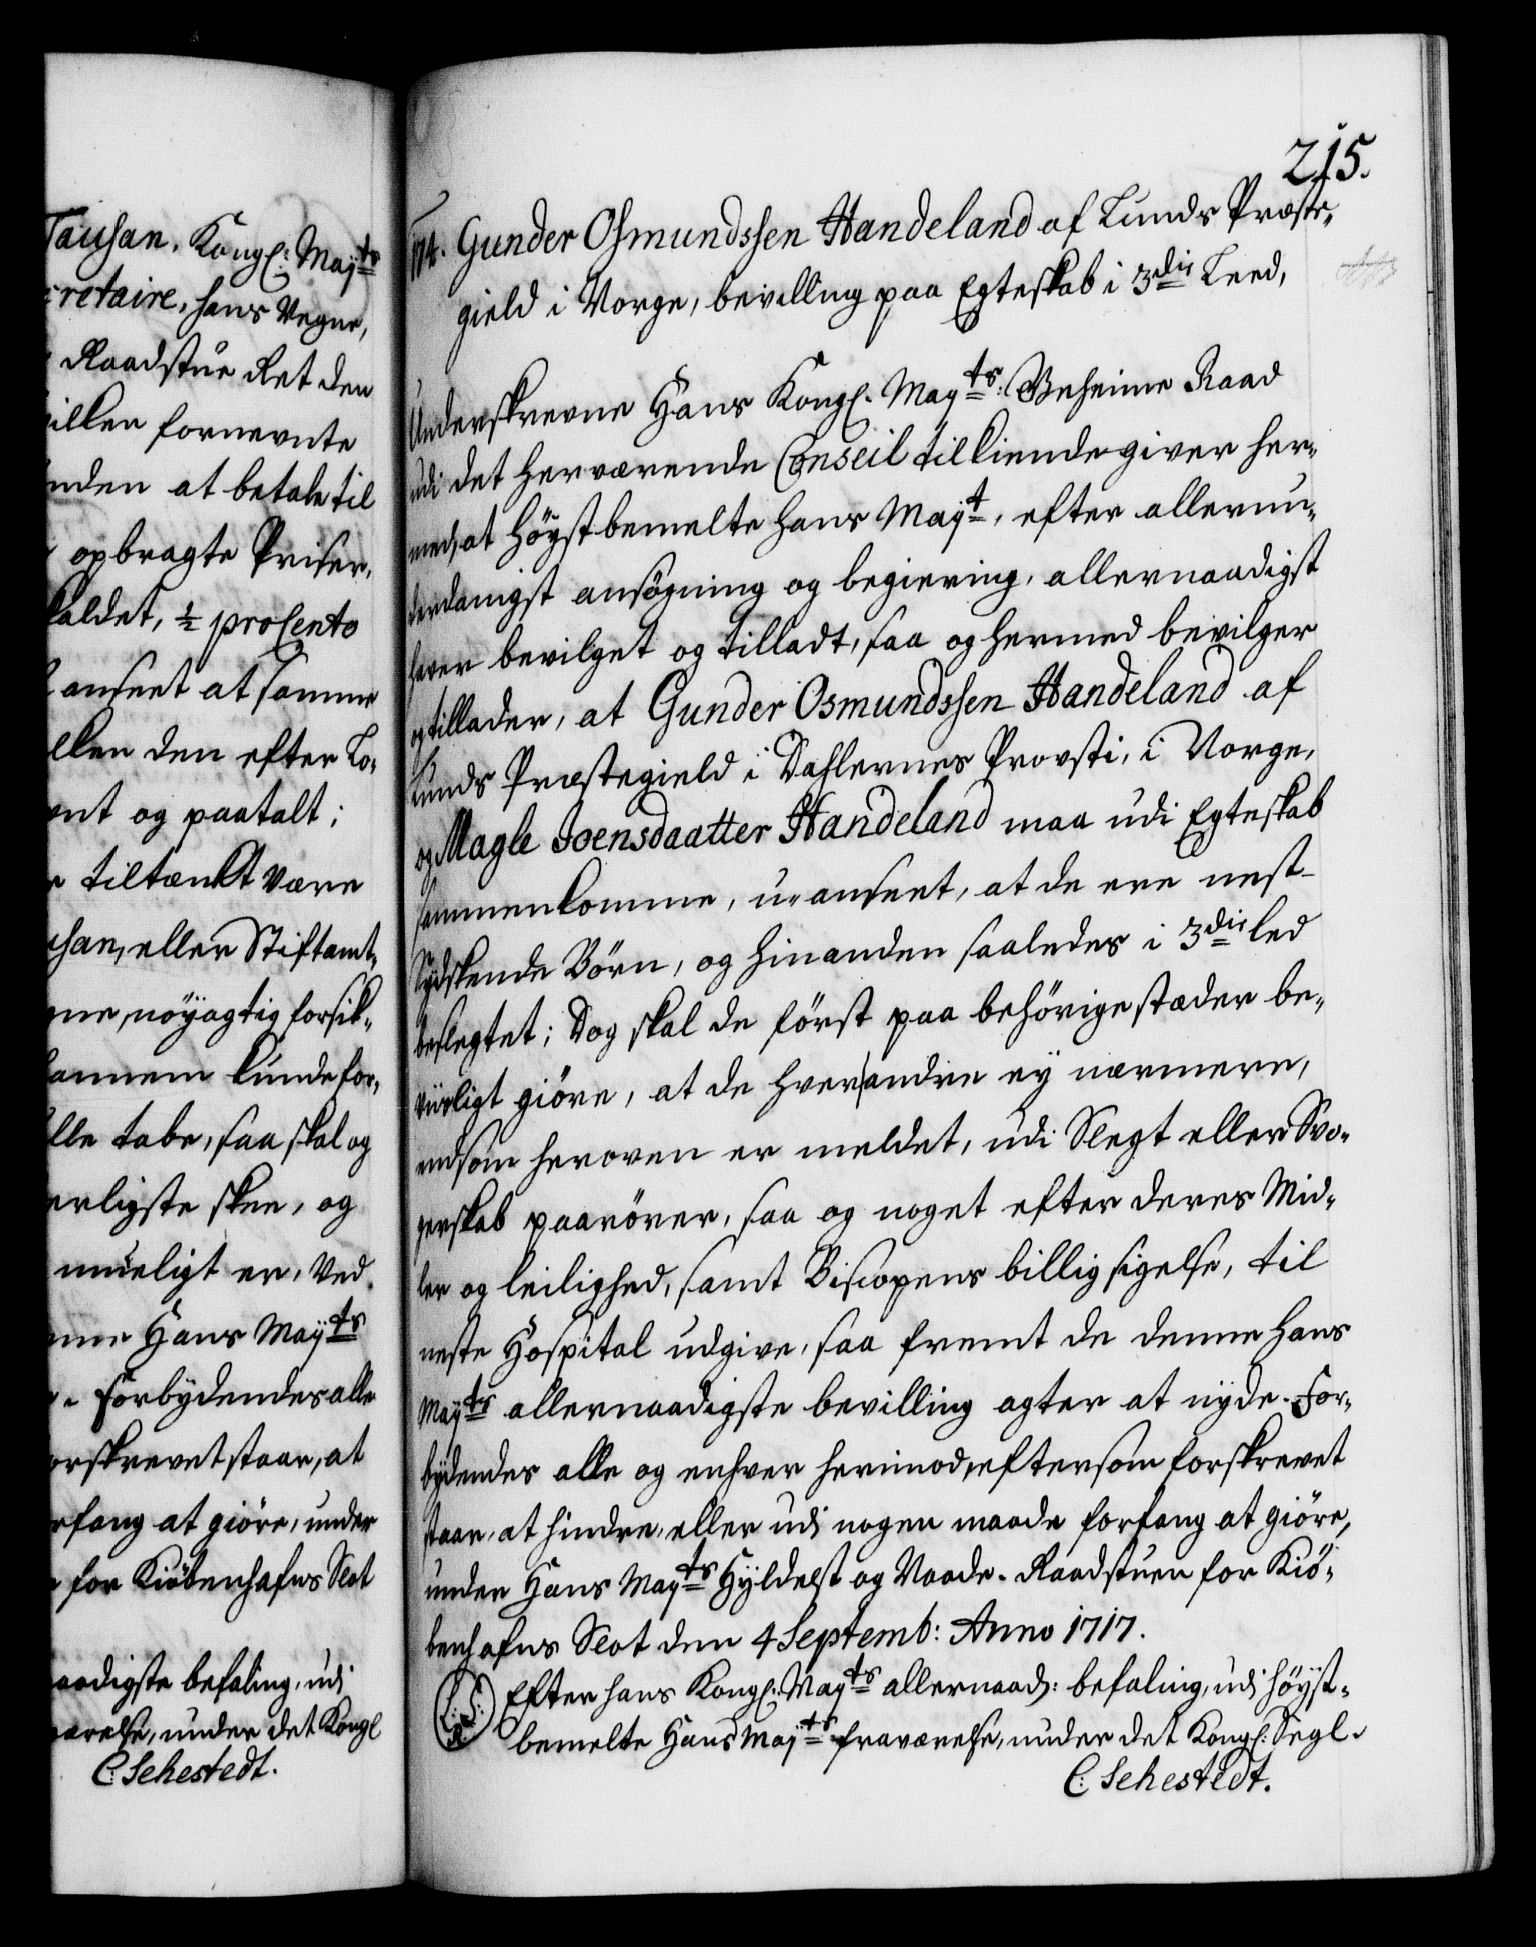 Tausan, Kongl: Maj.ts
cretaire, hans Vegne,
Raadstue Ret den
illen fornevnte
nden at betale til
opbragte Priser,
kaldet, ½ proCento
anseet at samme
ellen den efter Lo-
nt og paatalt;
tiltænkt være
usan, eller Stiftamt-
ne, nöyagtig forsik-
hannem kunde for-
lle tabe, saa skal og
erligste skee, og
mueligt er, Ved
Hans May.ts
Forbydendes alle
orskrevet staar, at
rfang at giöre, under
for Kiöbenhafns Slot
aadigste befaling, udi
værelse, under det Kongl
C: Sehestedt.
215.
174. Gunder Osmundssen Handeland af Lunds Præste-
gield i Norge, bevilling paa Egteskab i 3die Leed,
Underskrevne Hans Kongl. May.ts Geheime Raad
udi det herværende Conseil tilkiende giver her-
med, at höystbemelte hans May.t, efter allerun-
derdanigst ansögning og begiering, allernaadigst
haver bevilget og tilladt, saa og hermed bevilger
og tillader, at Gunder Osmundssen Handeland af
Lunds Præstegield i Dahlernes Provsti, i Norge,
og Magle Joensdaatter Handeland maa udi Egteskab
sammenkomme, u-anseet, at de ere nest-
Sydskende Börn, og hinanden saaledes i 3die led
beslegtet; Dog skal de först paa behörige stæder be-
viisligt giöre, at de hverandre ey nærmere,
end som heroven er meldet, udi Slegt eller Svo-
gerskab paarörer, saa og noget efter deres Mid-
ler og leilighed, samt Biscopens billigsigelse, til
neste Hospital udgive, saa fremt de denne hans
May.ts allernaadigste bevilling agter at nyde. For-
bydendes alle og enhver herimod, eftersom forskrevet
staar, at hindre, eller udi nogen maade forfang at giöre,
under Hans May.ts Hyldest og Naade. Raadstuen for Kiö-
benhafns Slot den 4 Septemb: Anno 1717.
L: S: Efter hans Kongl. May.ts allernaad: befaling, udi höyst-
R. bemelte Hans May.ts fraværelse, under det Kongl: Segl.
C: Sehestedt.